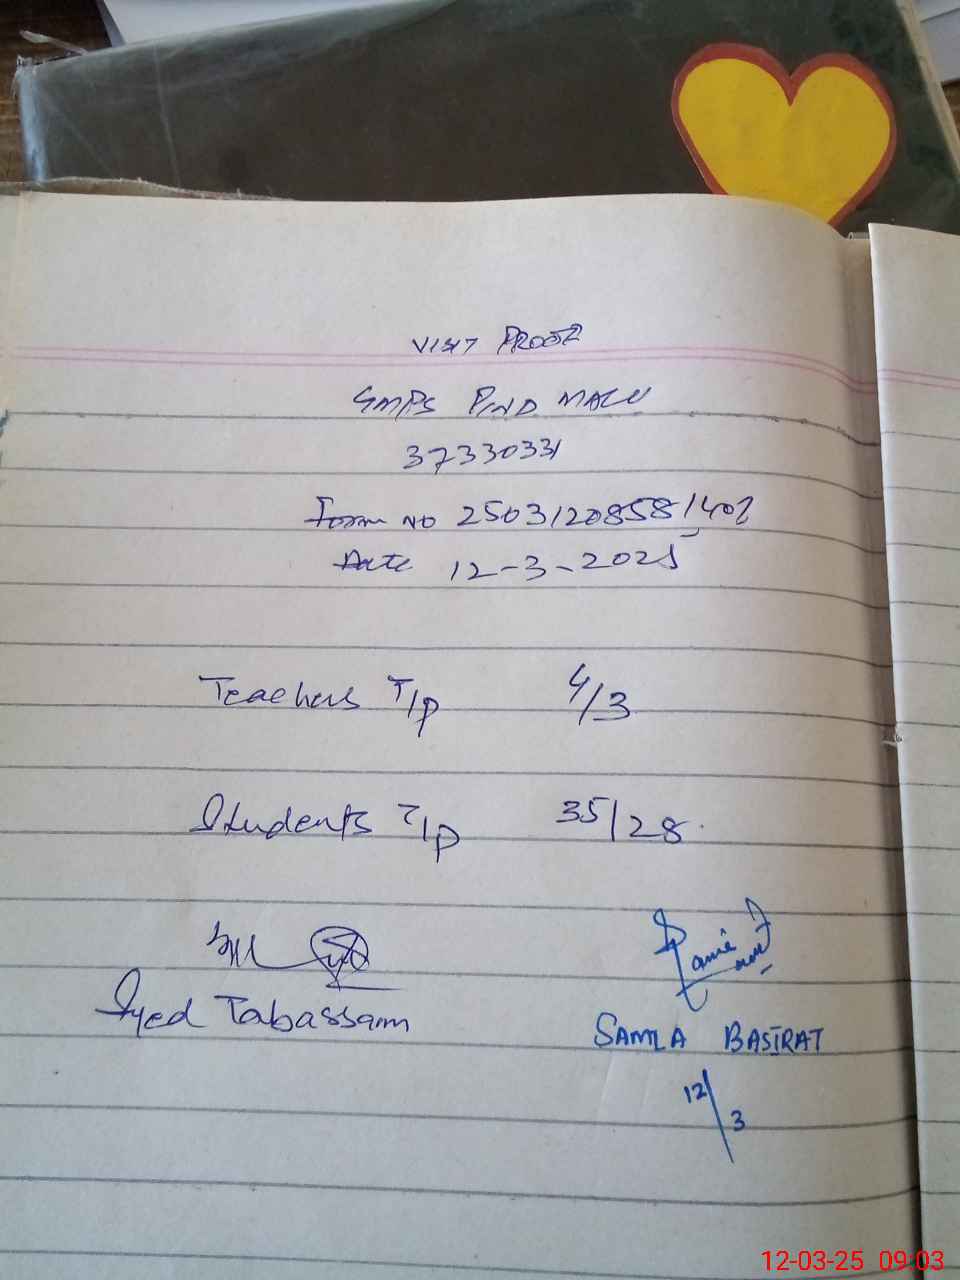 VISIT PROOF
GMPS PIND MALU
37330331
Form NO 25031208581402
Date 12-3-2025
Teachers T/P 4/3
Students T/P 35/28
Syed Tabassam
SAMIA BASIRAT
12/3
12-03-25 09:03